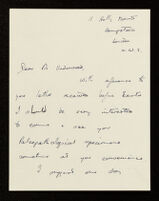 Holly Mount
Hampstead
London
N.W.3.
Dear Dr
With reference to
your letter received before Easter
I should be very interested
to come & see your
Histopathological specimens
sometime at your convenience
I suggest one day